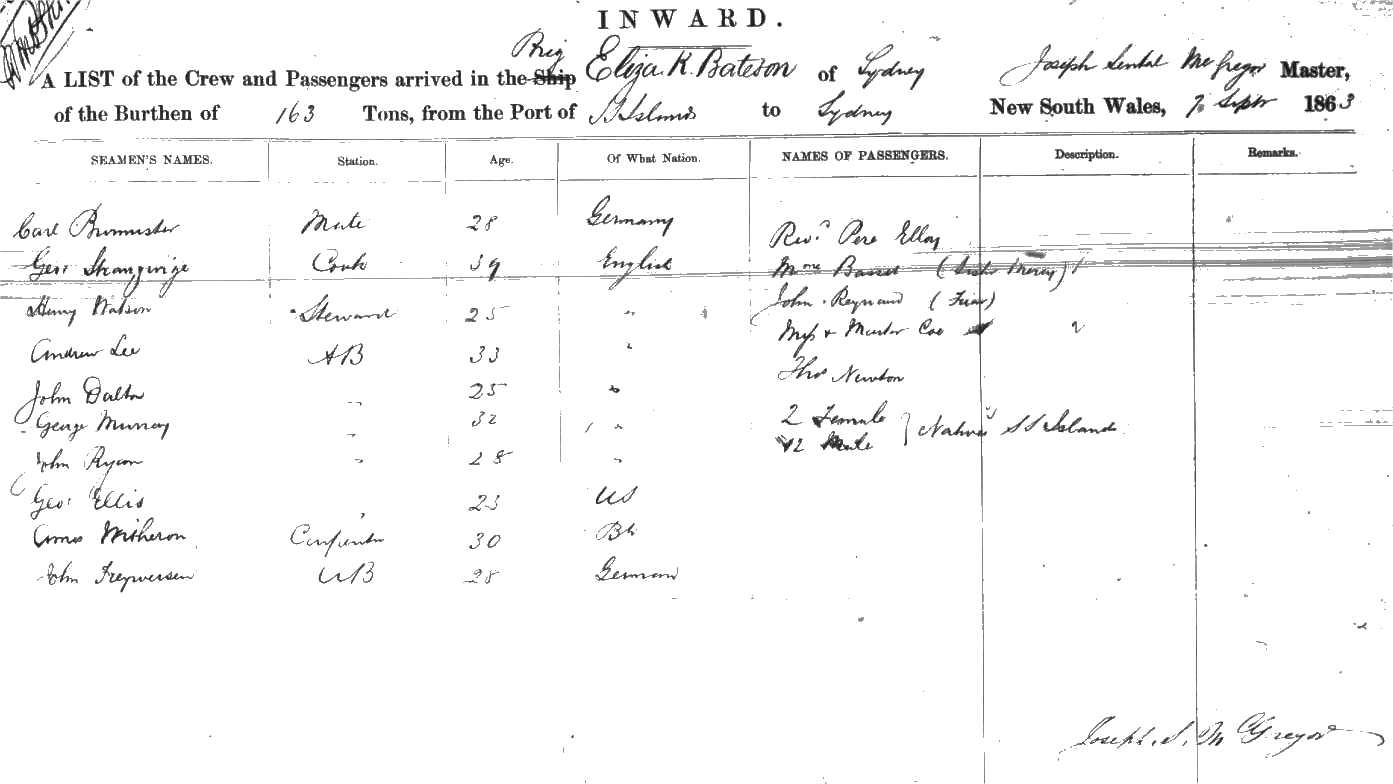 INWARD.
Brig
A LIST of the Crew and Passengers arrived in the Ship Eliza K. Bateson of Sydney Joseph McGregor Master,
of the Burthen of 163 Tons, from the Port of S S Islands to Sydney New South Wales, 7 Septr 1863
SEAMEN'S NAMES. Station. Age. Of What Nation. NAMES OF PASSENGERS. Description. Remarks.
Carl Mate 28 Germany
Revd Pere Elloy
Geo. Cook 39 English
Mme (Mercy) 1
Henry Watson Steward 25 "
John Reynaud (Friar)
Miss & Master Coe 2
Andrew Lee AB 33 "
Thos Newton
John Dalton " 25 "
George Murray " 32 "
2 Female
2 Male } Natives S S Islands
John Ryan " 28 "
Geo. Ellis " 23 US
Carpenter 30 Bh
John AB 28 German
Joseph. S. McGregor